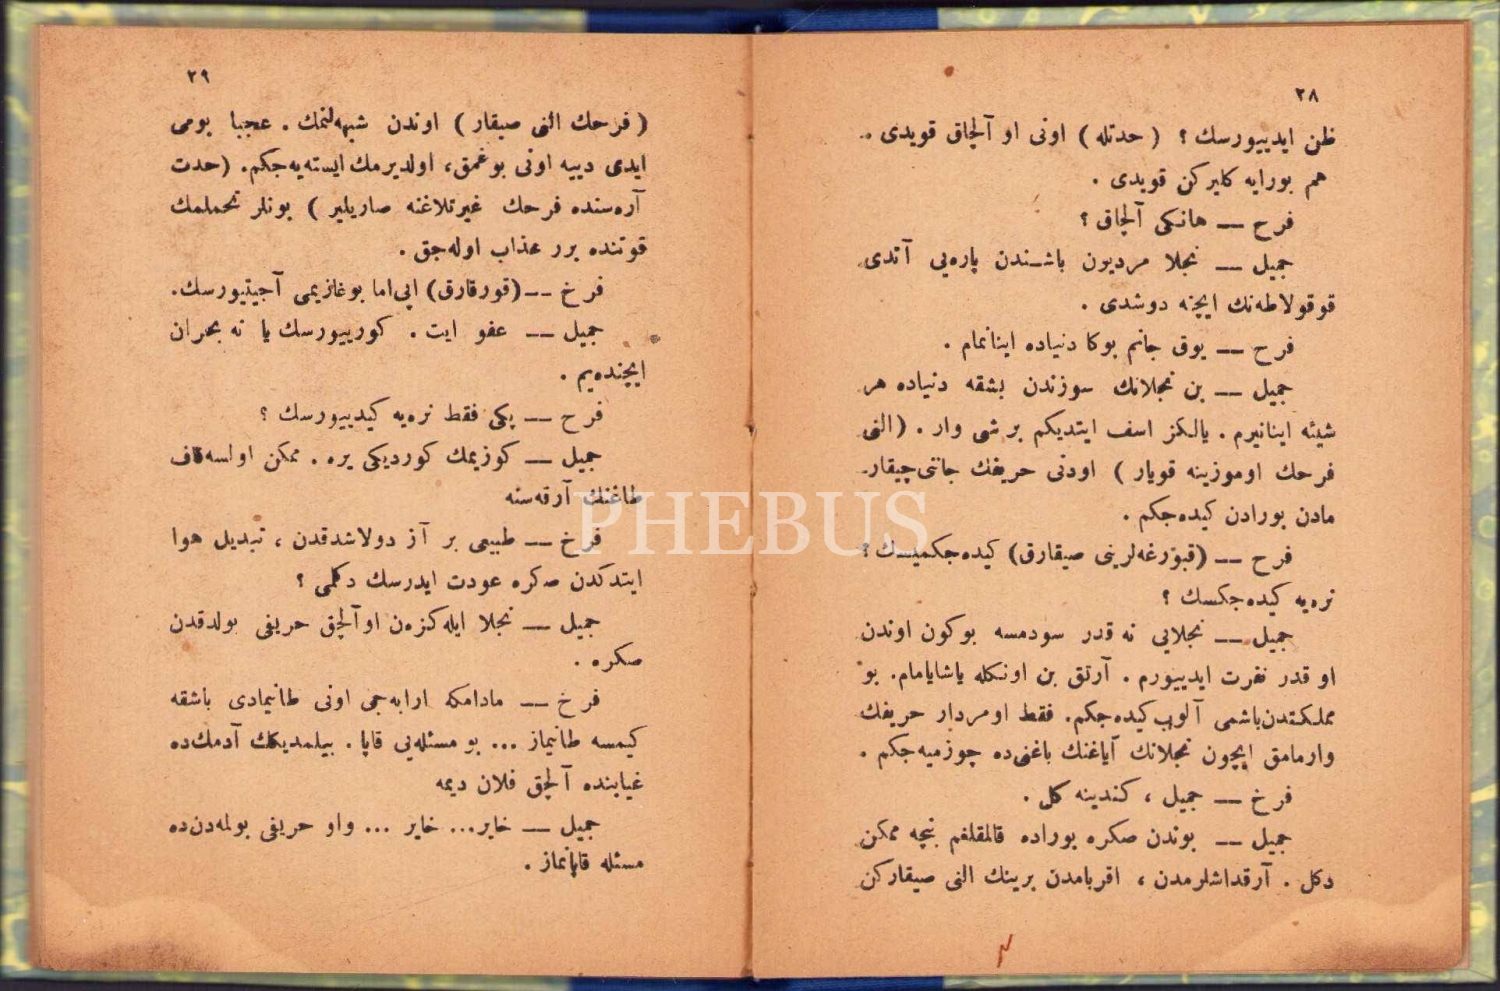 ٢٨
ظن ايدييورسك ؟ ( حدتله ) اونى او آلچاق قويدى ..
هم بورايه كليركن قويدى .
فرح — هانكى آلچاق ؟
جميل — نجلا مرديون باشندن پاره‌يى آتدى
قوقولاطه‌نك ايچنه دوشدى .
فرح — يوق جانم بوكا دنياده اينانمام .
جميل — بن نجلانك سوزندن بشقه دنياده هر
شيئه اينانيرم . يالكز اسف ايتديكم بر شى وار . (النى
فرحك اوموزينه قويار ) اودنى حريفك جاننى چيقار۔
مادن بورادن كيده‌جكم .
فرح — (قبورغه‌لرينى صيقارق) كيده‌جكميسك ؟
نره‌يه كيده‌جكسك ؟
جميل — نجلايى نه قدر سودمسه بوكون اوندن
او قدر نفرت ايدييورم . آرتق بن اونكله ياشايامام. بو
مملكتدن باشمى آلوب كيده‌جكم. فقط اومردار حريفك
وارمامق ايچون نجلانك آياغنك باغنى‌ده چوزميه‌جكم .
فرخ — جميل ، كندينه كل .
جميل — بوندن صكره بوراده قالمقلغم نيچه ممكن
دكل . آرقداشلرمدن ، اقربامدن برينك النى صيقاركن
٢٩
( فرحك النى صيقار ) اوندن شبهه‌لنمك . عجبا بومى
ايدى دييه اونى بوغمق، اولديرمك ايسته‌يه‌جكم. (حدت
آره‌سنده فرحك غيرتلاغنه صاريلير ) بونلر تحملمك
قوتنده برر عذاب اوله‌جق .
فرخ —(قورقارق) اپى‌اما بوغازيمى آجيتيورسك.
جميل — عفو ايت . كورييورسك يا نه بحران
ايچنده‌يم .
فرح — پكى فقط نره‌يه كيدييورسك ؟
جميل — كوزيمك كورديكى يره . ممكن اولسه قاف
طاغنك آرقه‌سنه
فرخ — طبيعى بر آز دولاشدقدن ، تبديل هوا
ايتدكدن صكره عودت ايدرسك دكلمى ؟
جميل — نجلا ايله كزه‌ن اوآلچق حريفى بولدقدن
صكره .
فرخ — مادامكه ارابه‌جى اونى طانيمادى باشقه
كيمسه طانيماز ... بو مسئله‌يى قاپا . بيلمديكك آدمك‌ده
غيابنده آلچق فلان ديمه
جميل — خاير... خاير ... واو حريفى بولمه‌دن‌ده
مسئله قاپانماز .
PHEBUS